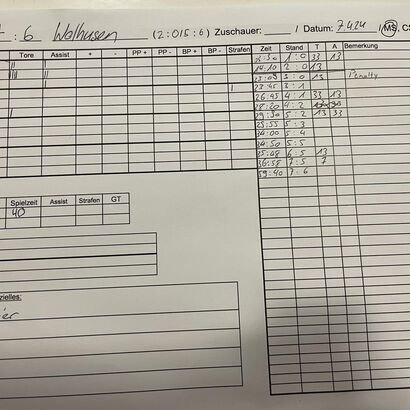 : 6 Wolhusen (2:0 15:6) Zuschauer: / Datum: 7.4.24 / MS, CS
Tore Assist + - PP + PP - BP + BP - Strafen Zeit Stand T A Bemerkung
1 : 0 33 13
14.10 2 : 0 13
3 : 0 13 Penalty
23:45 3 : 1
26:45 4 : 1 33 13
28:20 4 : 2
29:30 5 : 2 13 33
5 : 3
34:00 5 : 4
34:50 5 : 5
6 : 5 13
36:58 7 : 5 7
59:40 7 : 6
Spielzeit Assist Strafen GT
40
zielles: